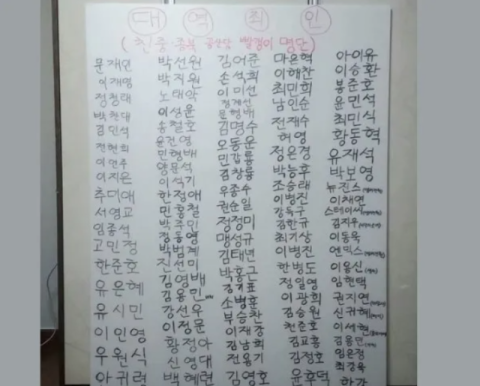 대역죄인
(친중·종북 공산당 빨갱이 명단)
문재인
이재명
정청래
박찬대
김민석
전현희
이언주
이지은
추미애
서영교
임종석
고민정
한준호
유은혜
유시민
이인영
우원식
아귀령
박선원
박지원
노태악
이성윤
송철호
윤건영
민형배
양문석
이석기
한정애
민홍철
박주민
정동영
박범계
진선미
김영배
김용민
강선우
이정문
황정아
신영대
백혜련
김어준
손석희
이미선
문형배
김명수
오동운
민갑룡
김창룡
우종수
권순일
정정미
맹성규
김태년
박홍근
소병훈
부승찬
이재강
김남희
전용기
김영호
마은혁
이해찬
최민희
남인순
전재수
허영
정은경
박능후
조승래
이병진
강득구
김한규
최기상
이병진
한병도
정일영
이광희
김승원
천준호
김교흥
김정호
윤호덕
아이유
이승환
봉준호
윤민석
최민식
황동혁
유재석
박보영
뉴진스
이채연
스테이씨
김지우
이동욱
엔믹스
이윤신
임현택
권지연
신귀혜
이서현
임은정
최강욱
한강